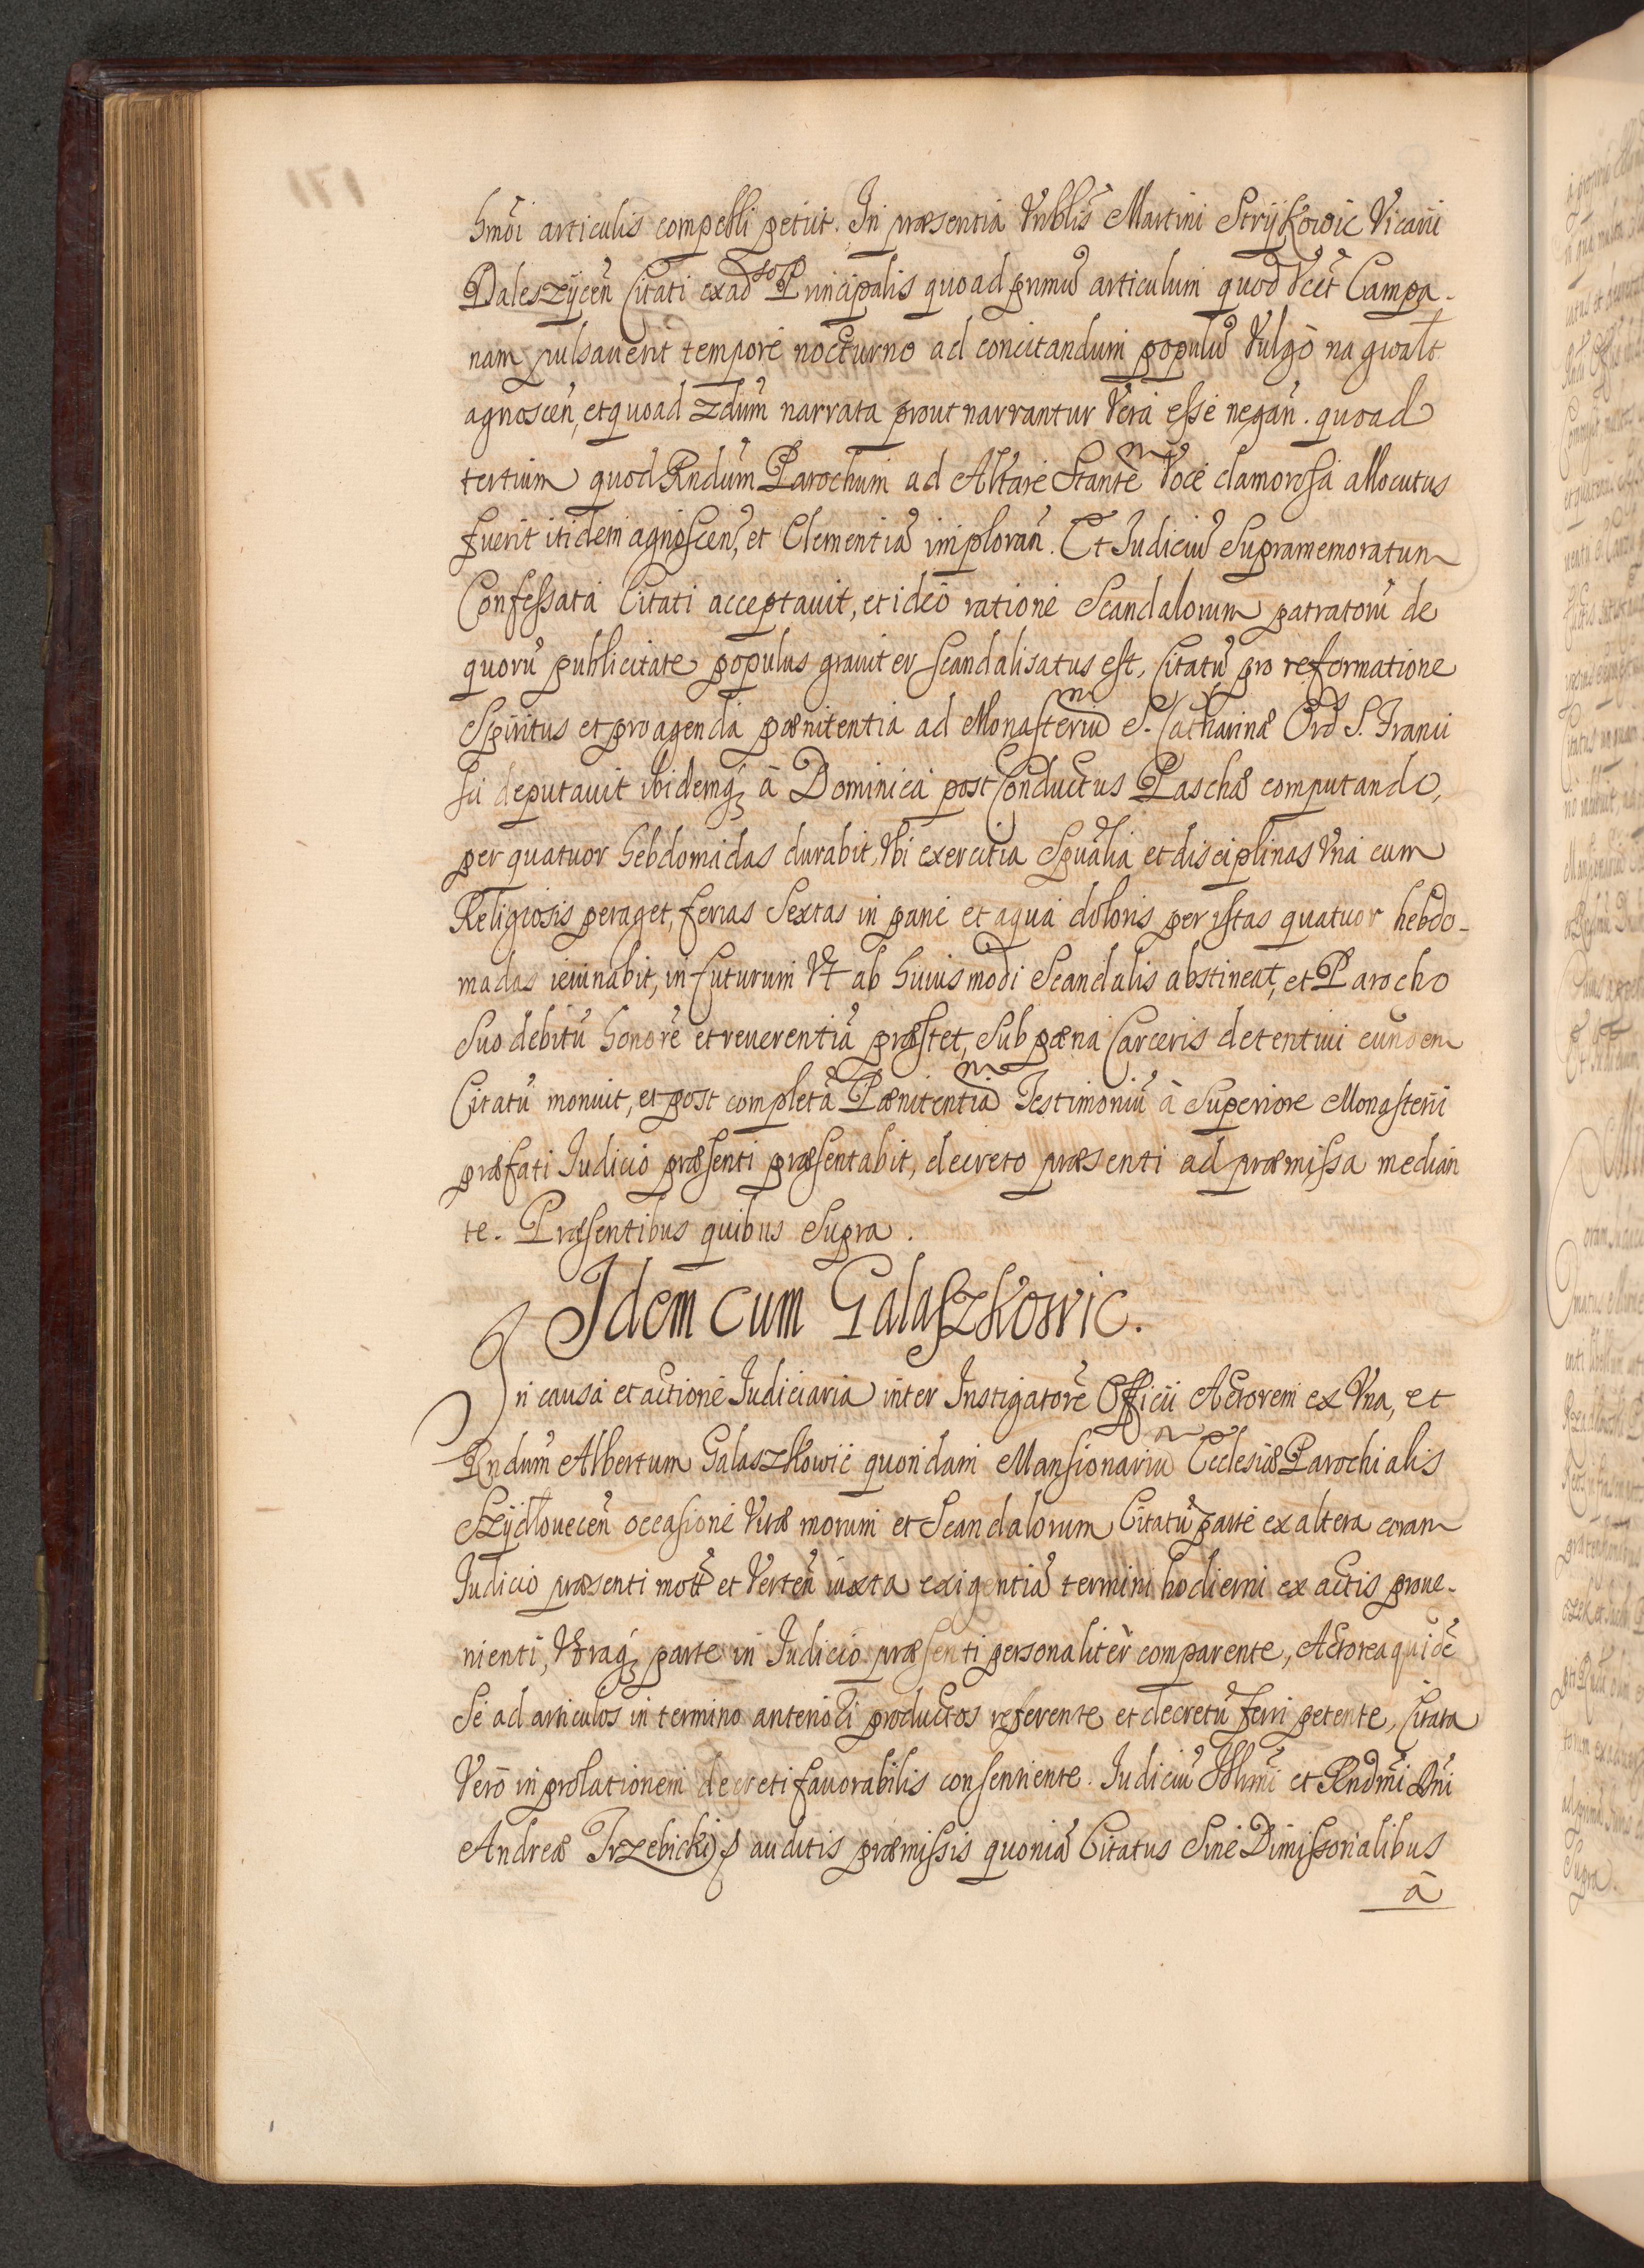 hmõi articulis compelli petijt. In præsentia Vnblis Martini Stryikowic Vicarii
Daleszÿcen̄ Citati ex ad̃so Principalis quoad primũ articulum quod Vcet̃ Campa-
nam pulsauerit tempore nocturno ad concitandum populũ Vulgò na gwałt
agnoscen̄, et quoad 2dum̃ narrata prout narrantur Vera esse negan̄. quoad
tertium quod Rndum̃ Parochum ad Altare Stantẽ Voce clamorosa allocutus
fuerit itidem agnoscen̄, et Clementiã imploran̄. Et Iudiciũ Supramemoratum
Confessata Citati acceptauit, et ideò ratione Scandalorum patratorũ de
quorũ publicitate populus grauiter scandalisatus est, Citatũ pro reformatione
Spiritus et pro agenda pænitentia ad Monasteriũ S. Catharinæ Ord̃ S. Franci
sci deputauit ibidemq́ꝫ à Dominica post Conductus Paschæ computando,
per quatuor hebdomadas durabit, Vbi exercitia Spũalia et disciplinas Vna cum
Religiosis peraget, ferias Sextas in pane et aqua doloris per istas quatuor hebdo-
madas ieiunabit, in futurum Vt ab huiusmodi Scandalis abstineat, et Parocho
Suo debitũ honorẽ et reuerentiã præstet, Sub pæna Carceris detentiui eundem
Citatũ monuit, et post completã Pænitentiã Testimoniũ à Superiore Monasterii
præfati Iudicio præsenti præsentabit, decreto præsenti ad præmissa median
te. Præsentibus quibus Supra.
Idem cum Galaszkowic.
In causa et actione Iudiciaria inter Instigatorẽ Officii Actorem ex Vna, et
Rndum̃ Albertum Galaszkowic quondam Mansionariũ Ecclesiæ Parochialis
Szÿdłouecen̄ occasione Vitæ morum et Scandalorum Citatũ parte ex altera coram
Iudicio præsenti mot̃ et Verten̄ iuxta exigentiã termini hodierni ex actis proue-
nienti, Vtraq́ꝫ parte in Iudicio præsenti personalitèr comparente, Actorea quidẽ
Se ad articulos in termino anteriori productos referente et decretũ ferri petente, Citata
Verò in prolationem decreti fauorabilis consentiente. Iudiciũ Illmi et Rndmi Dni
Andreæ Trzebicki auditis præmissis quoniã Citatus Sine Dimissorialibus
à